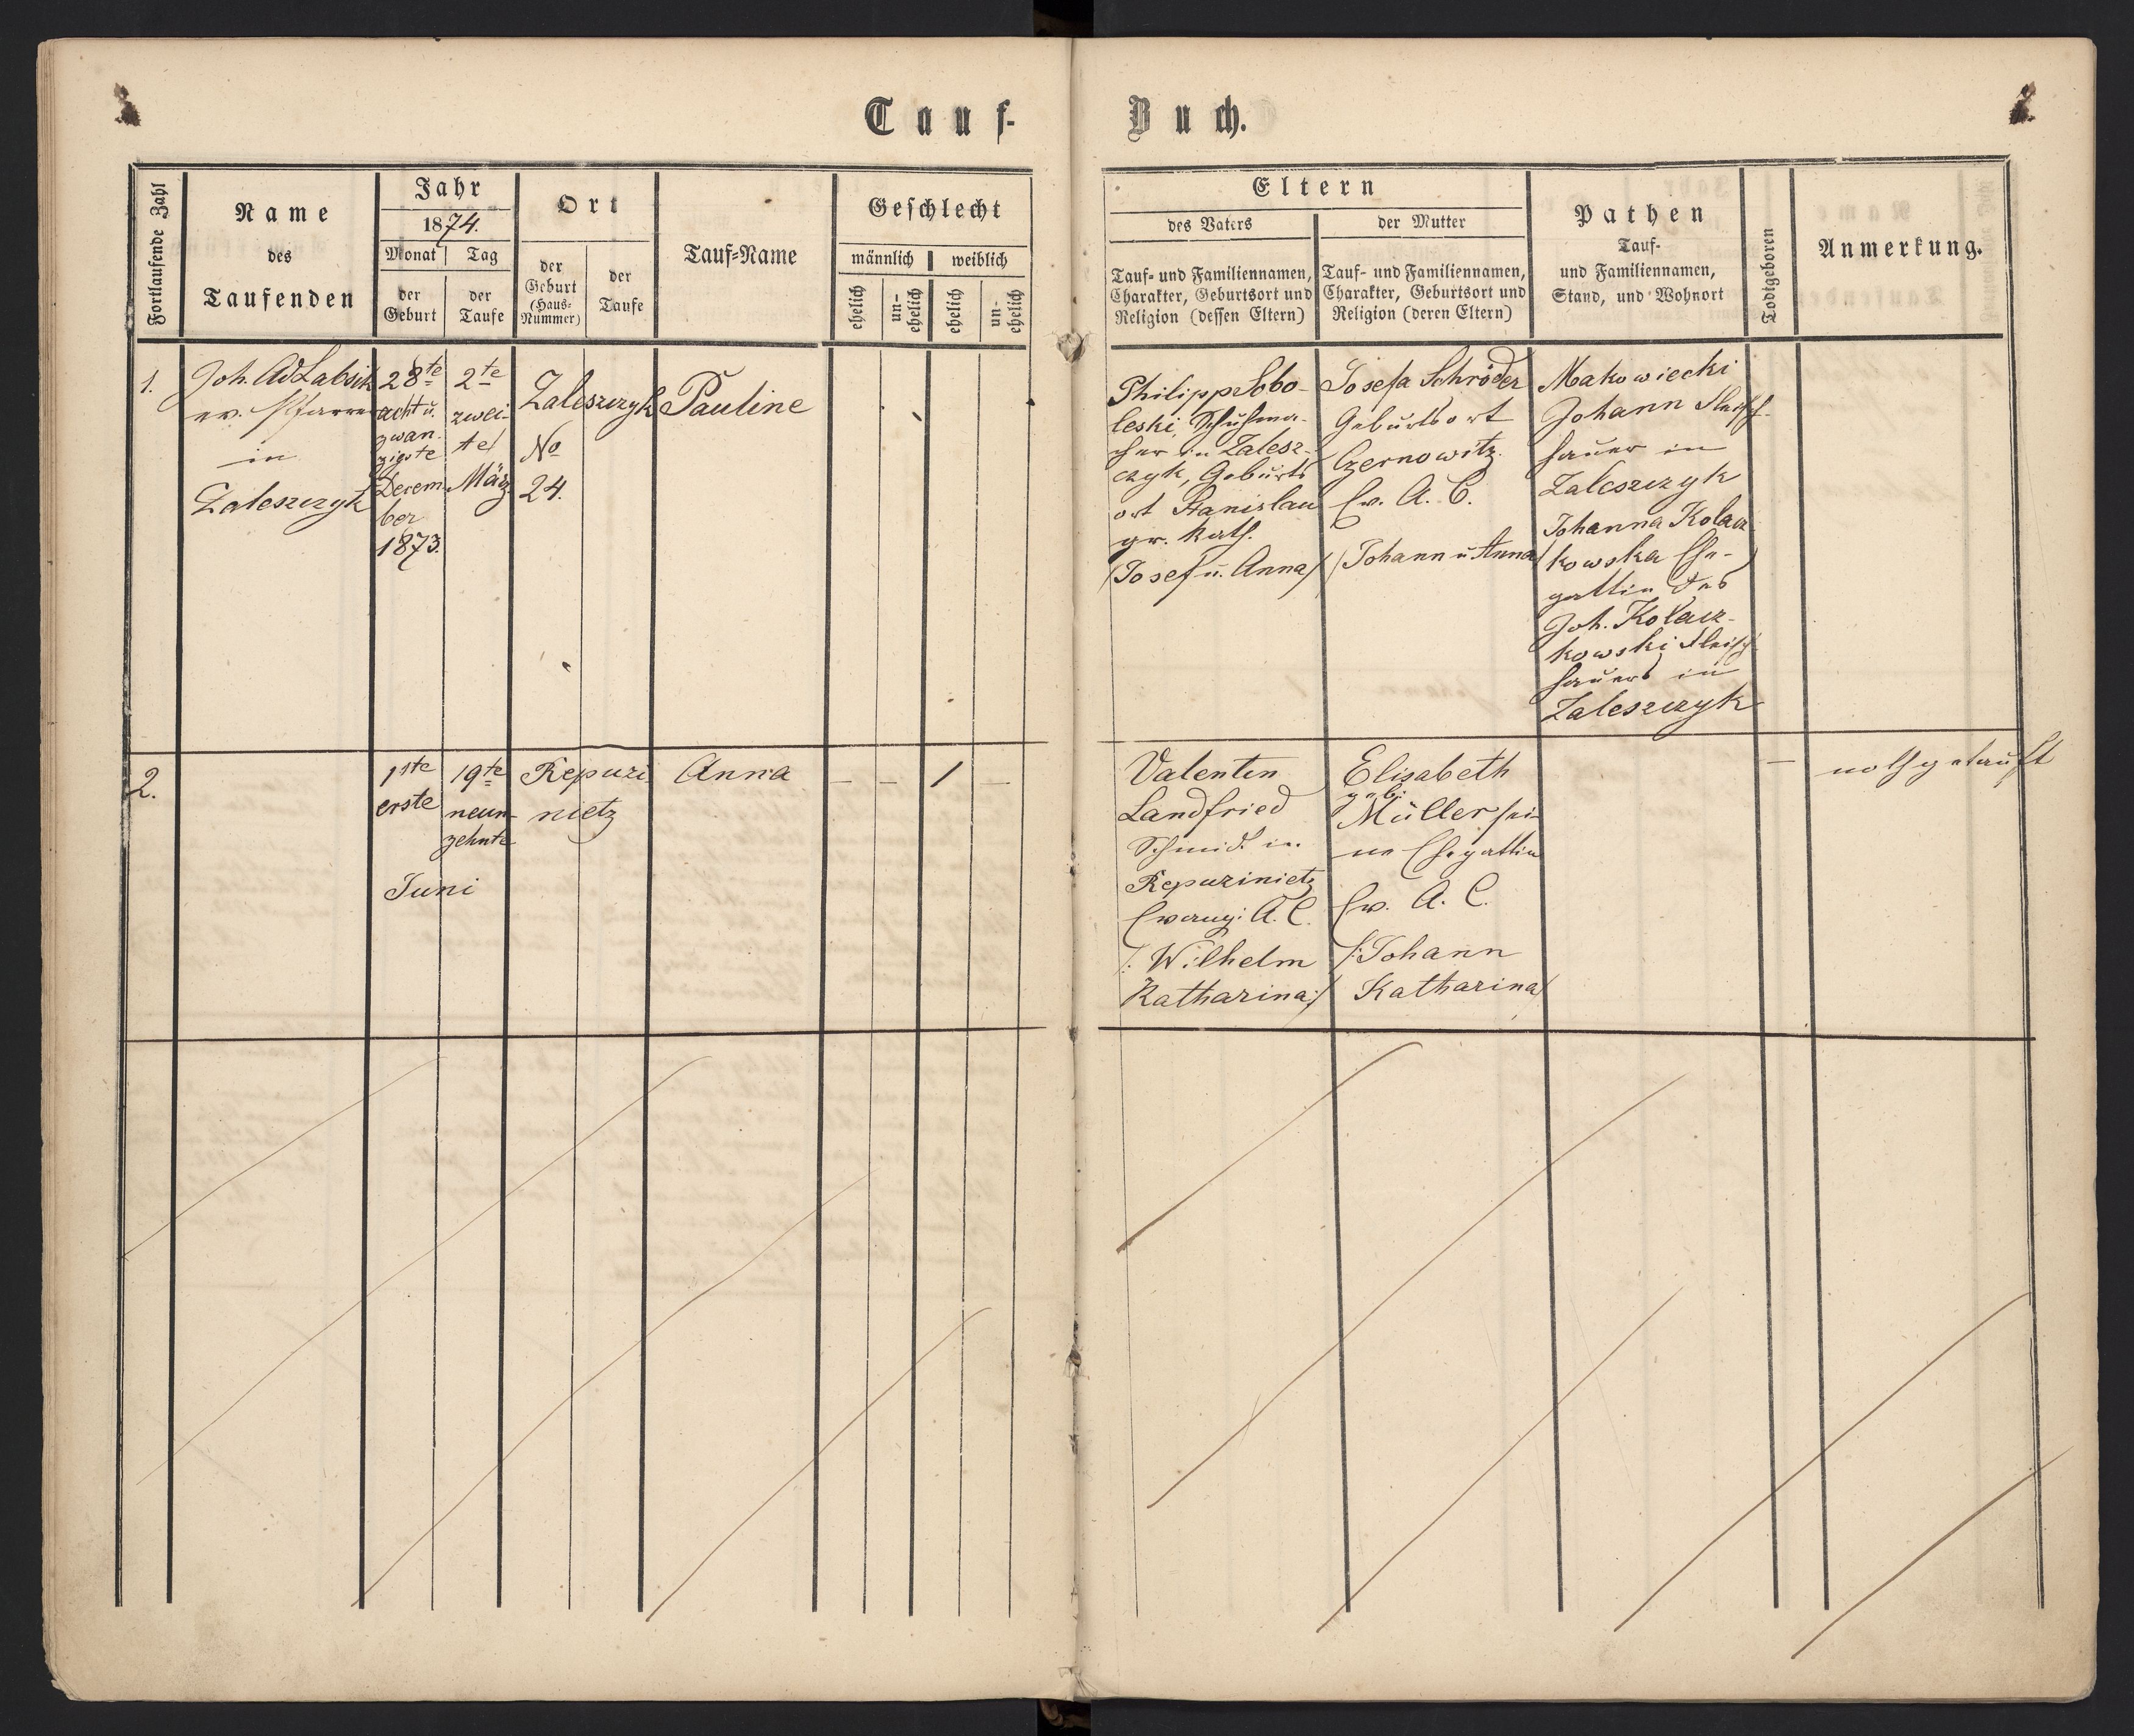 Tauf-
Buch.
Fortlaufende Zahl
Name
des
Taufenden
Jahr
1874.
Monat
Tag
der
Geburt
der
Taufe
Ort
der
Geburt
(Haus-
Nummer)
der
Taufe
Tauf-Name
Geschlecht
männlich
weiblich
ehelich
un-
ehelich
ehelich
un-
ehelich
Eltern
des Vaters
der Mutter
Tauf- und Familiennamen,
Charakter, Geburtsort und
Religion (dessen Eltern)
Tauf- und Familiennamen,
Charakter, Geburtsort und
Religion (deren Eltern)
Pathen
Tauf-
und Familiennamen,
Stand, und Wohnort
Todtgeboren
Anmerkung.
1.
Joh. Ad Labsik
ev. Pfarrer
in
Zaleszczyk
28te
acht u.
zwan-
zigste
Decem-
ber
1873.
2te
zwei-
te
März
Zaleszczyk
No
24.
Pauline
Philipp Sobo-
leski, Schuhma-
cher in Zalesz-
czyk, Geburts
ort Stanislau
gr. kath.
(Josef u. Anna)
Josefa Schröder
Geburtsort
Czernowitz.
Ev. A. C.
(Johann u Anna)
Makowiecki
Johann Fleisch-
hauer in
Zaleszczyk
Johanna Kolacz
kowska Ehe-
gattin des
Joh. Kolacz-
kowski Fleisch
hauers in
Zaleszczyk
2.
1ste
erste
19te
neun-
zehnte
Juni
Repuzi
nietz
Anna
— — 1 —
Valentin
Landfried
Schmid in
Repuzinietz
Evang: A. C.
/: Wilhelm
Katharina:/
Elisabeth
geb:
Müller sei-
ne Ehegattin
Ev. A. C.
/: Johann
Katharina/
—
nothgetauft